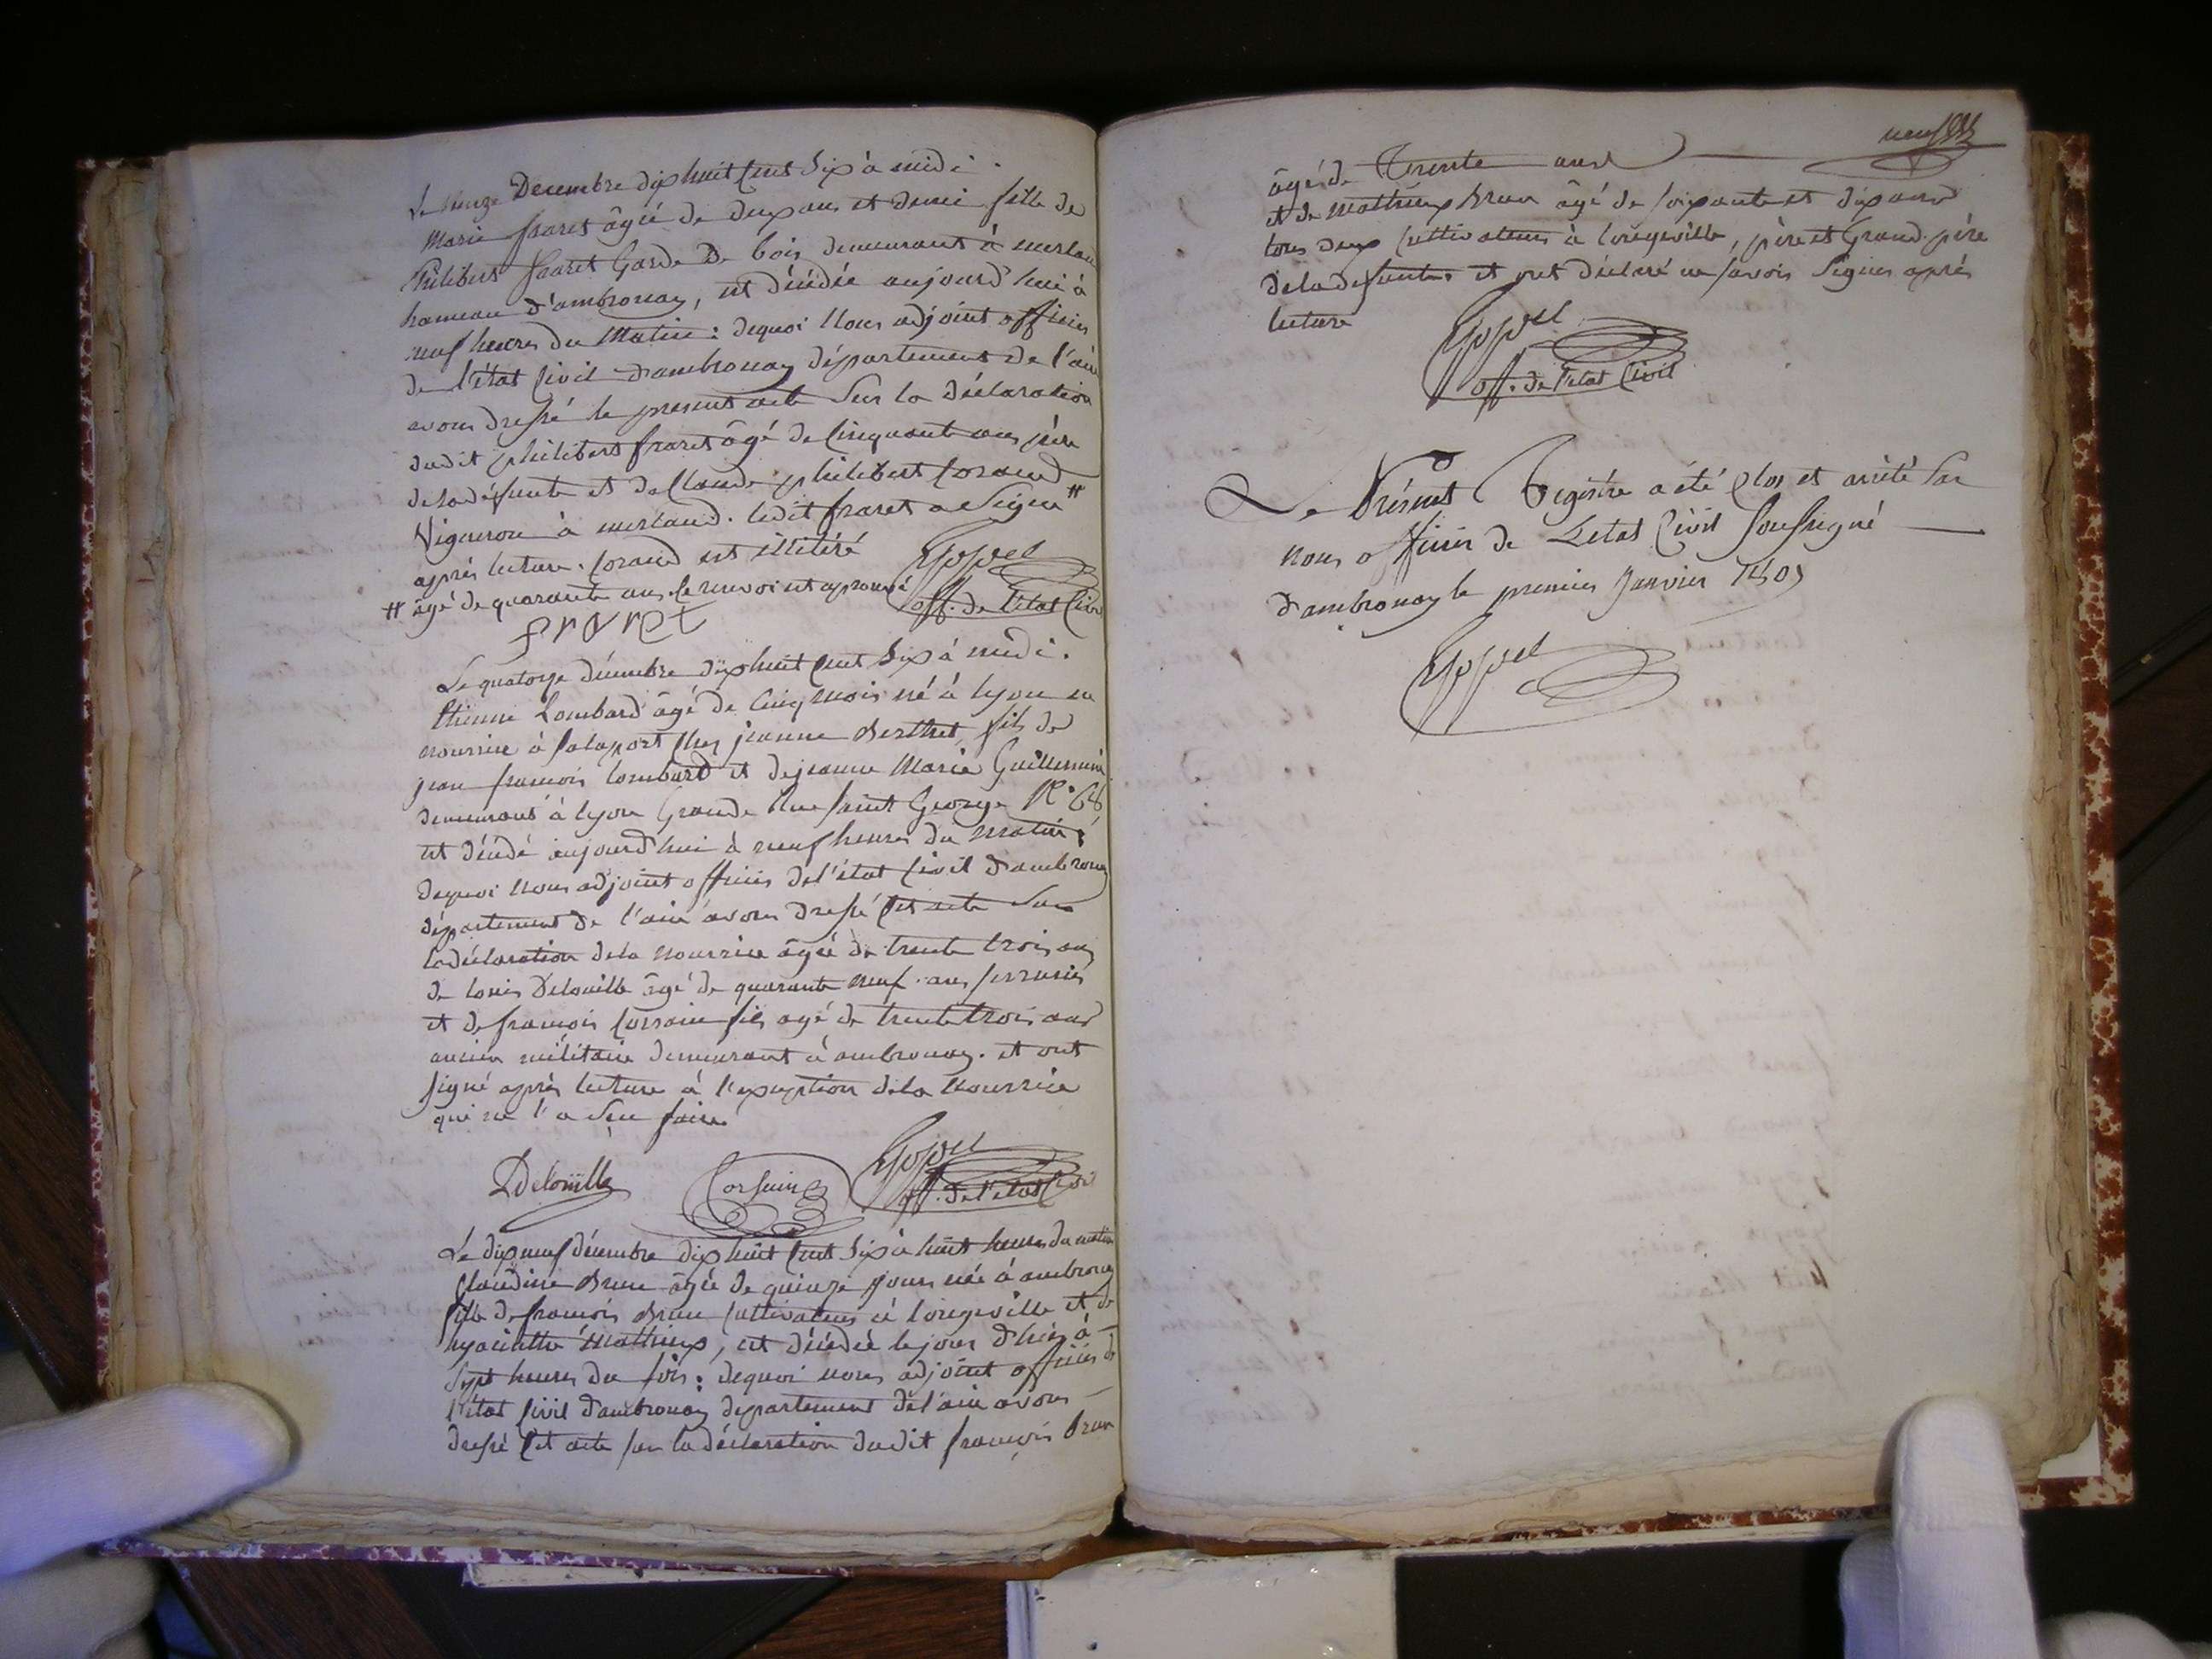 Le onze Decembre dix huit Cent Six à midi.
Marie fraret âgée de deux ans et demi fille de
Philibert fraret Garde De bois demeurant à merland
hameau d'ambronay, est décédée aujourd'hui à
neuf heures du Matin: dequoi Nous adjoint officier
de l'état Civil d'ambronay département de l'ain
avons dressé le present acte Sur la déclaration
dudit philibert fraret âgé de Cinquante ans père
de la défunte et de Claude philibert Corand
Vigneron à merland. ledit fraret a Signé #
après lecture. Corand est illitéré
# âgé de quarante ans. le renvoi est aprouvé
off. de l'état Civil
fraret
Le quatorze décembre dix huit Cent Six à midi.
Etienne Lombard âgé de Cinq mois né à lyon en
nourrice à Salaport Chez jeanne Berthet, fils de
jean francois Lombard et de jeanne Marie Guillermin
demeurant à lyon Grande Rue Saint George N°
est décédé aujourd'hui à neuf heures du matin;
dequoi nous adjoint officier de l'état Civil d'ambronay
département de l'ain avons dressé Cet acte Sur
la déclaration de la nourrice âgée de trente trois ans
de louis Delouille âgé de quarante neuf ans serrurier
et de francois Corsain fils agé de trente trois ans
ancien militaire demeurant à ambronay. et ont
signé après lecture à l'exception de la nourrice
qui ne l'a Seu faire.
Delouille Corsain
off. de l'état Civil
Le dix neuf décembre dix huit Cent Six à huit heures du matin
Claudine Brun âgée de quinze jours née à ambronay
fille de francois Brun Cultivateur à longeville et de
hyacinthe Mathieux, est décédée le jour d'hier à
Sept heures du soir: dequoi nous adjoint officier de
l'état Civil d'ambronay departement de l'ain avons
dressé Cet acte sur la déclaration dudit françois brun
âgé de Trente ans
et de mathieux Brun âgé de soixante et dix ans
tous deux Cultivateurs à longeville, père et Grand père
de la défunte. et ont déclaré ne savoir Signer après
lecture
off. de l'etat Civil
Le Présent Registre a été Clos et arrêté Par
nous officier de L'etat Civil Soussigné
d'ambronay le premier Janvier 1807